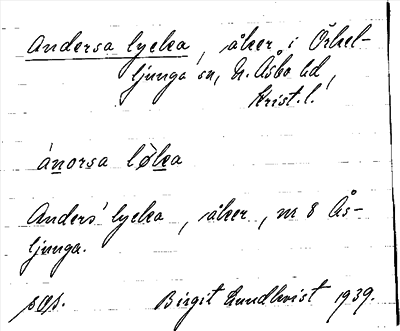 Andersa lycka, åker i Örkel-
ljunga sn, N. Åsbo hd,
Krist. l.
ánorsa lø̀ka
Anders' lycka, åker, m 8 Ås-
ljunga.
sas. Birgit Lundkvist 1939.